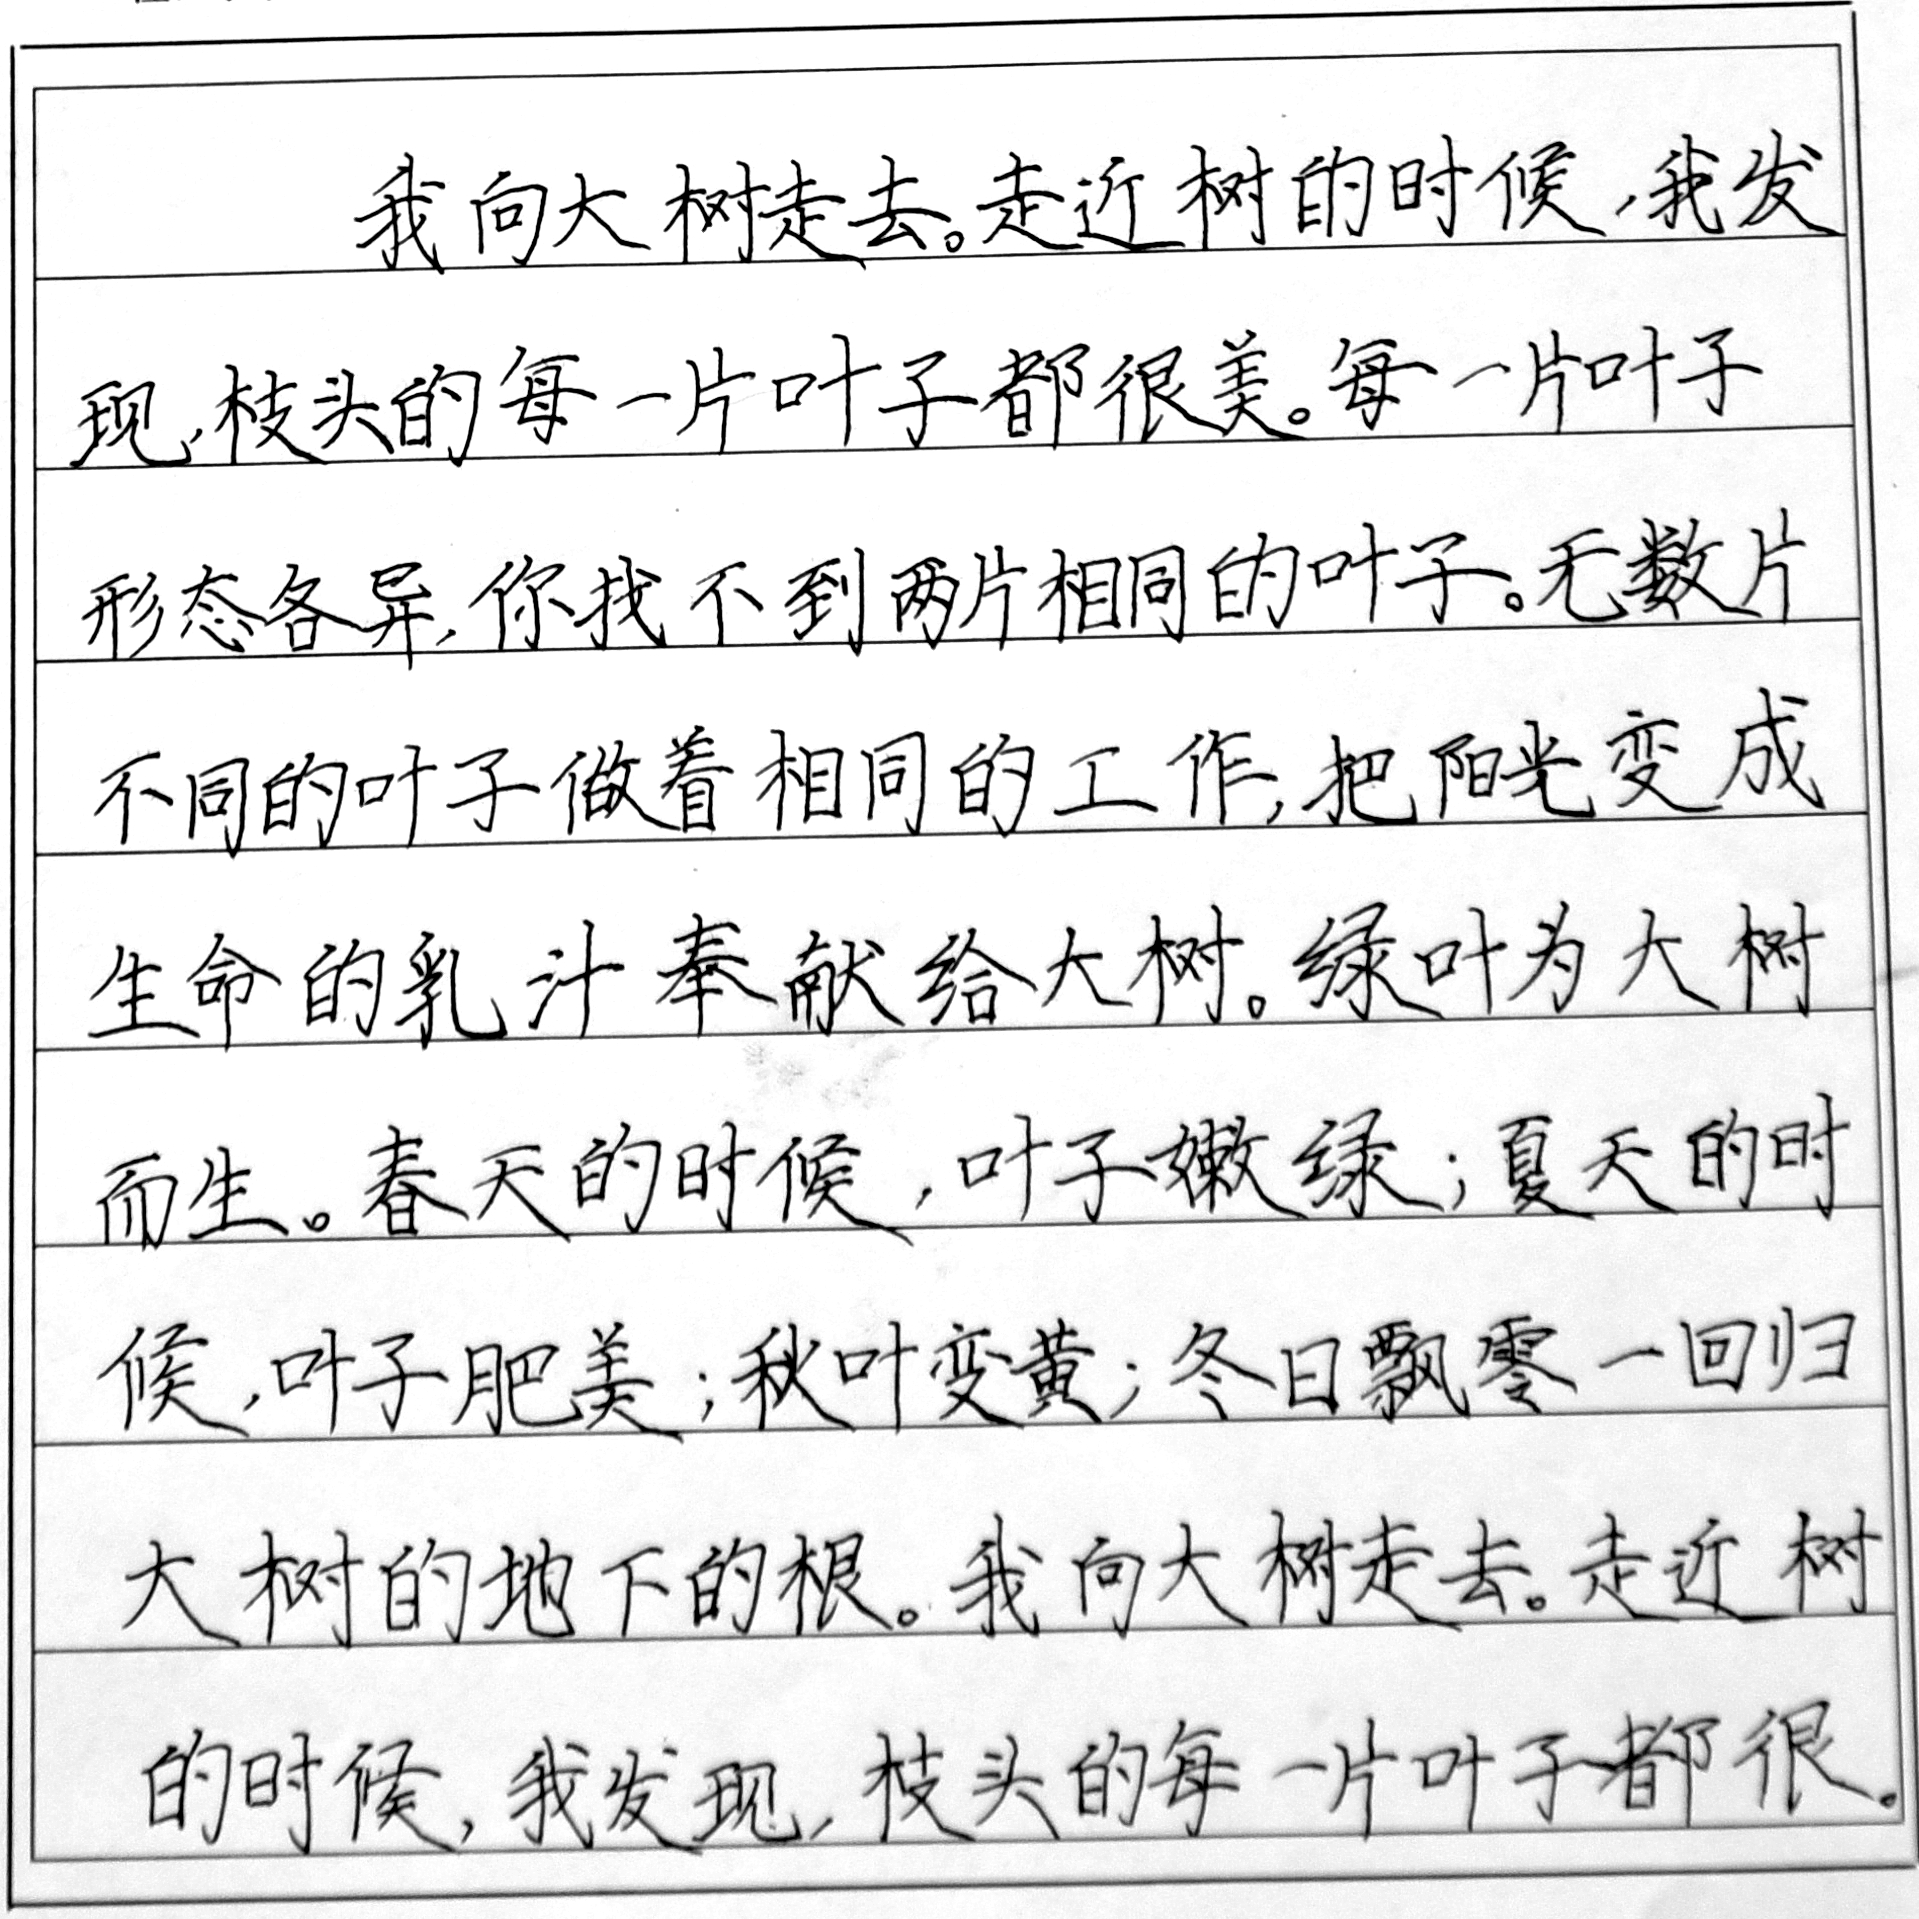 我向大树走去。走近树的时候,我发
现,枝头的每一片叶子都很美。每一片叶子
形态各异,你找不到两片相同的叶子。无数片
不同的叶子做着相同的工作,把阳光变成
生命的乳汁奉献给大树。绿叶为大树
而生。春天的时候,叶子嫩绿;夏天的时
候,叶子肥美;秋叶变黄;冬日飘零一回归
大树的地下的根。我向大树走去。走近树
的时候,我发现,枝头的每一片叶子都很。